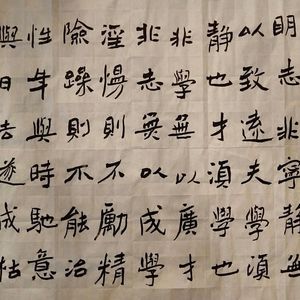 明志非寧靜無
以致遠夫學湏
靜也才湏學也
非學無以廣才
非志無以成學
淫慢則不勵精
險躁則不能治
性年與時馳意
與日去遂成枯